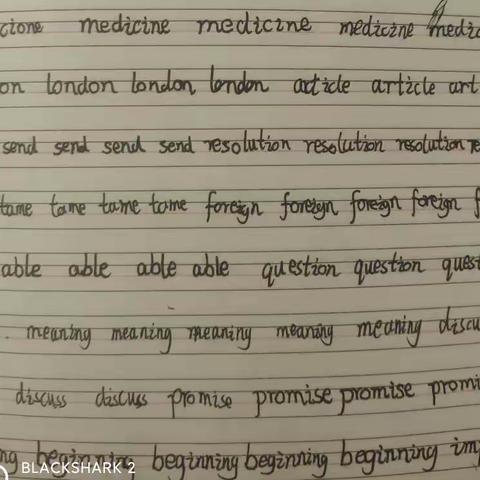 cione medicine medicine medicine medic
on london london london article article art
send send send send resolution resolution resolution re
tame tame tame tame foreign foreign foreign foreign f
able able able able question question quest
meaning meaning meaning meaning meaning discu
discuss discuss promise promise promise promi
ng beginning beginning beginning beginning im
BLACKSHARK 2